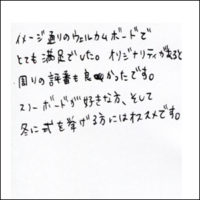 イメージ通りのウェルカムボードで
とても満足でした。オリジナリティがあると
周りの評番も良かったです。
スノーボードが好きな方、そして
冬に式を挙げる方にはオススメです。